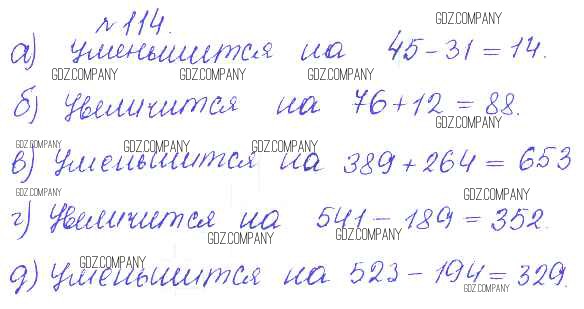 №114.
GDZ.COMPANY
а) уменьшится на 45 - 31 = 14.
GDZ.COMPANY GDZ.COMPANY GDZ.COMPANY
б) Увеличится на 76 + 12 = 88.
GDZ.COMPANY
GDZ.COMPANY GDZ.COMPANY GDZ.COMPANY
в) Уменьшится на 389 + 264 = 653
GDZ.COMPANY GDZ.COMPANY
г) Увеличится на 541 - 189 = 352.
GDZ.COMPANY GDZ.COMPANY
GDZ.COMPANY
д) Уменьшится на 523 - 194 = 329.
GDZ.COMPANY